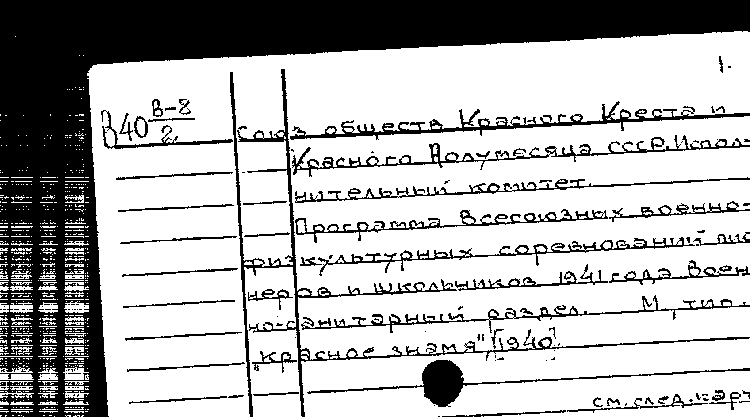 1.
В40 В-8/2
Союз обществ Красного Креста и
Красного Полумесяца СССР. Испол-
нительный комитет.
Программа Всесоюзных военно-
физкультурных соревнований пио
неров и школьников 1941 года Воен
но-санитарный раздел. М., тип.
"Красное знамя", [1940].
см. след. карт